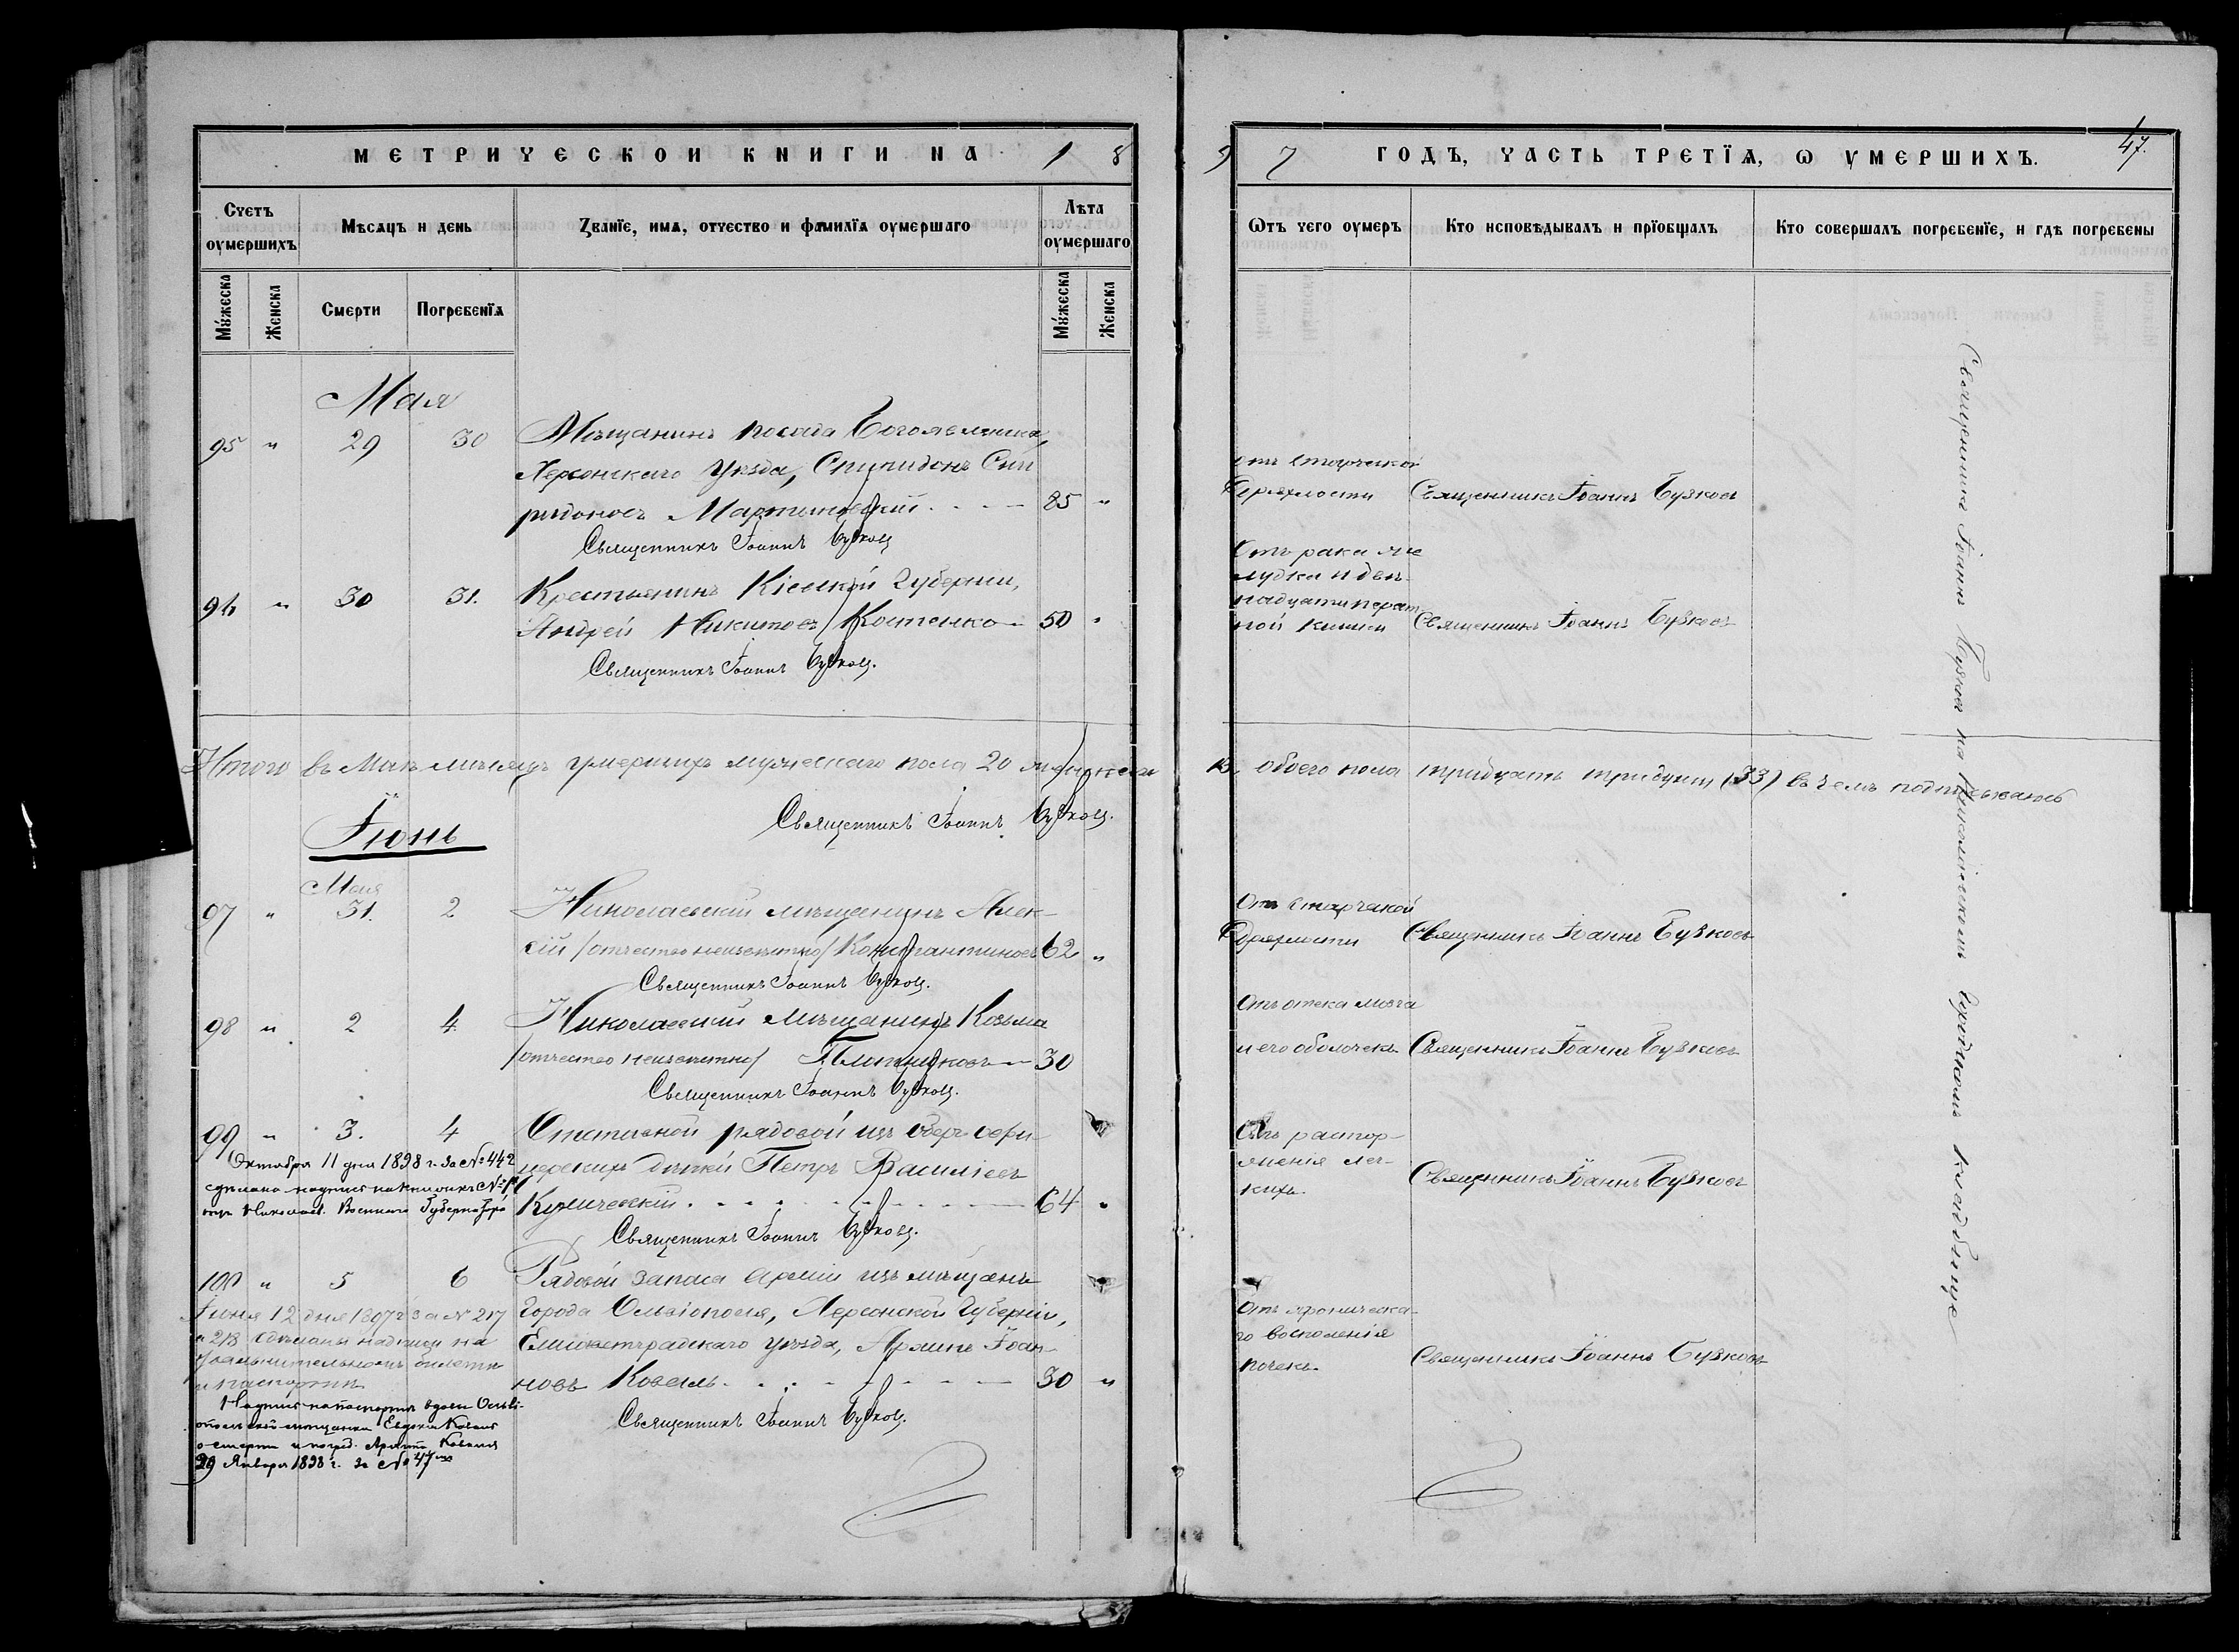 МЕТРИЧЕСКОЙ КНИГИ НА 18
97 ГОДЪ, ЧАСТЬ ТРЕТЇѦ, Ѡ УМЕРШИХЪ.
47.
Счетъ оумершихъ
Мѣсяцъ и день
Званїе, имѧ, отчество и фамилїѧ оумершаго
Лѣта оумершаго
Ѿтъ чего оумеръ
Кто исповѣдывалъ и прїобщалъ
Кто совершалъ погребенїе, и гдѣ погребены
Мꙋжеска
Женска
Смерти
Погребенїѧ
Мꙋжеска
Женска
Мая
95 " 29 30 Мѣщанинъ посада Богоявленска,
Херсонскаго уѣзда, Спиридонъ Спи
ридоновъ Мартиновскій 85 "
Священникъ Іоаннъ Бузковъ
отъ старческой
дряхлости Священникъ Іоаннъ Бузковъ
96 " 30 31. Крестьянинъ Кіевской Губерніи,
Андрей Никитовъ Костенко 50 "
Священникъ Іоаннъ Бузковъ.
Отъ рака же
лудка и двѣ
надцатиперст
ной кишки Священникъ Іоаннъ Бузковъ
Итого въ Маѣ мѣсяцѣ умершихъ мужескаго пола 20 женска
13 обоего пола тридцать три души (33) въ чемъ подписуемся
Священникъ Іоаннъ Бузковъ.
Іюнь
Мая
97 " 31. 2 Николаевскій мѣщанинъ Алек-
сій /отчество неизвѣстно/ Константиновъ 62 "
Священникъ Іоаннъ Бузковъ.
Отъ старческой
дряхлости Священникъ Іоаннъ Бузковъ
98 " 2 4 Николаевскій мѣщанинъ Козьма
/отчество неизвѣстно/ Плотниковъ 30
Священникъ Іоаннъ Бузковъ.
Отъ отека мозга
и его оболочекъ Священникъ Іоаннъ Бузковъ
99 " 3. 4 Отставной рядовой изъ оберъ-офи
церскихъ дѣтей Петръ Василіевъ
64 "
Священникъ Іоаннъ Бузковъ.
Октября 11 дня 1898 г. за № 442
сдѣлана надпись на
Николаев. Военнаго Губернатора
Отъ растор-
женія лег-
кихъ. Священникъ Іоаннъ Бузковъ
100 " 5 6 Рядовой запаса арміи изъ мѣщанъ
города Ольвіополя, Херсонской Губерніи,
Елисаветградскаго уѣзда, Іоан-
новъ Коваль 30 "
Священникъ Іоаннъ Бузковъ.
Іюня 12 дня 1897 г. за № 217
и 218 сдѣланы надписи на
увольнительномъ билетѣ
и паспортѣ
Надпись на паспортѣ вдовы Ольві-
опольской мѣщанки Евдокіи Коваль
о смерти и погреб. Коваля
29 Января 1898 г. за № 47
Отъ хроническа
го воспаленія
почекъ. Священникъ Іоаннъ Бузковъ
Священникъ Іоаннъ Бузковъ на городскомъ кладбище